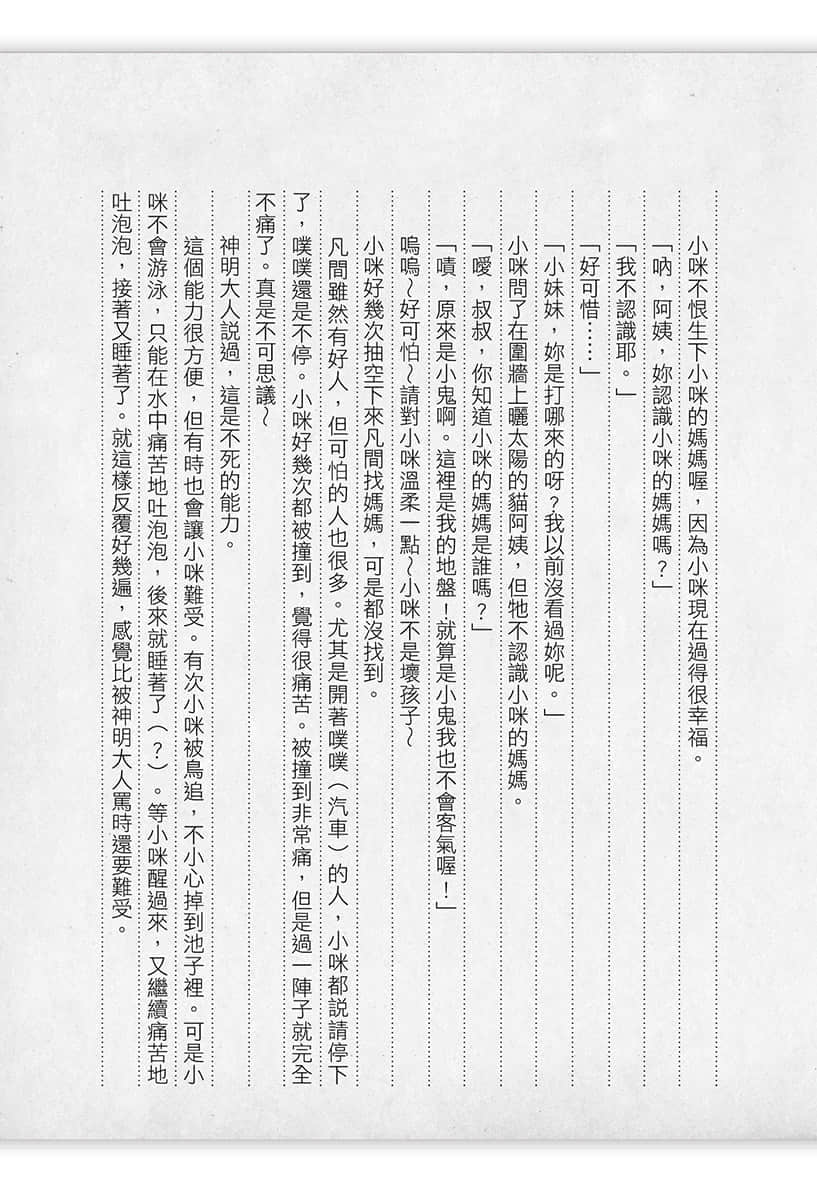 小咪不恨生下小咪的媽媽喔，因為小咪現在過得很幸福。
「吶，阿姨，妳認識小咪的媽媽嗎？」
「我不認識耶。」
「好可惜⋯⋯」
「小妹妹，妳是打哪來的呀？我以前沒看過妳呢。」
小咪問了在圍牆上曬太陽的貓阿姨，但牠不認識小咪的媽媽。
「噯，叔叔，你知道小咪的媽媽是誰嗎？」
「嘖，原來是小鬼啊。這裡是我的地盤！就算是小鬼我也不會客氣喔！」
嗚嗚～好可怕～請對小咪溫柔一點～小咪不是壞孩子～
小咪好幾次抽空下來凡間找媽媽，可是都沒找到。
凡間雖然有好人，但可怕的人也很多。尤其是開著噗噗（汽車）的人，小咪都說請停下
了，噗噗還是不停。小咪好幾次都被撞到，覺得很痛苦。被撞到非常痛，但是過一陣子就完全
不痛了。真是不可思議～
神明大人說過，這是不死的能力。
這個能力很方便，但有時也會讓小咪難受。有次小咪被鳥追，不小心掉到池子裡。可是小
咪不會游泳，只能在水中痛苦地吐泡泡，後來就睡著了（？）。等小咪醒過來，又繼續痛苦地
吐泡泡，接著又睡著了。就這樣反覆好幾遍，感覺比被神明大人罵時還要難受。